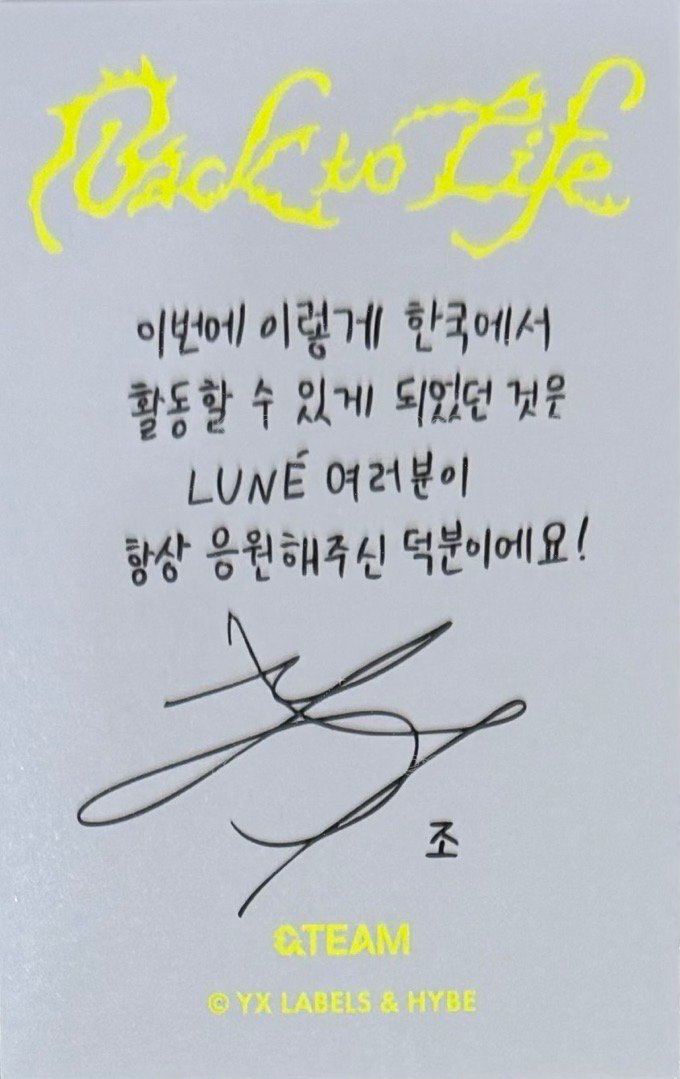 Back to Life
이번에 이렇게 한국에서
활동할 수 있게 되었던 것은
LUNÉ 여러분이
항상 응원해주신 덕분이에요!
조
&TEAM
© YX LABELS & HYBE